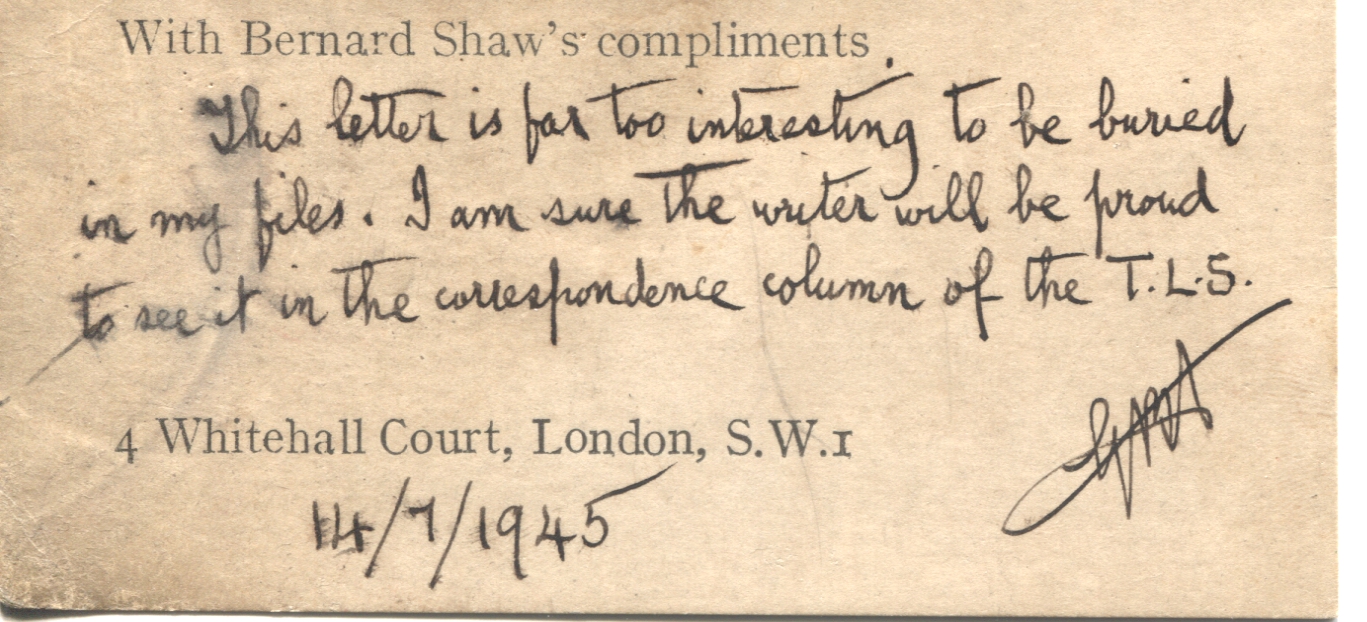 With Bernard Shaw's compliments.
This letter is far too interesting to be buried
in my files. I am sure the writer will be proud
to see it in the correspondence column of the T.L.S.
4 Whitehall Court, London, S.W.1
14/7/1945